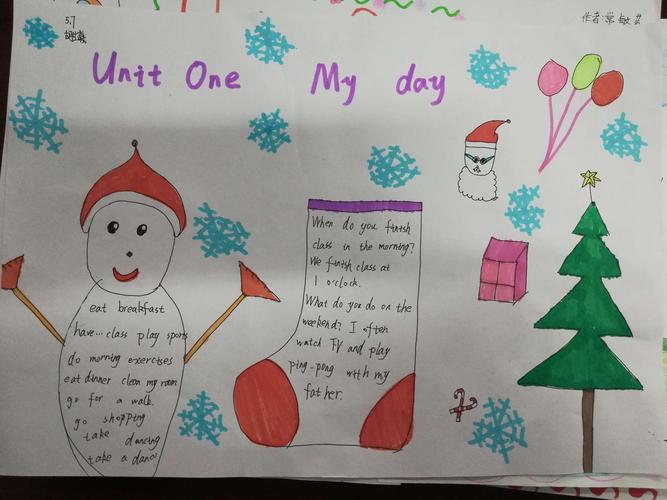 5.7
作者:常敏
Unit One My day
eat breakfast
have... class play sports
do morning exercises
eat dinner clean my room
go for a walk.
go shopping
take dancing
take a dance
When do you finish
class in the morning?
We finish class at
1 o'clock.
What do you do on the
weekend? I often
watch TV and play
ping-pong with my
father.